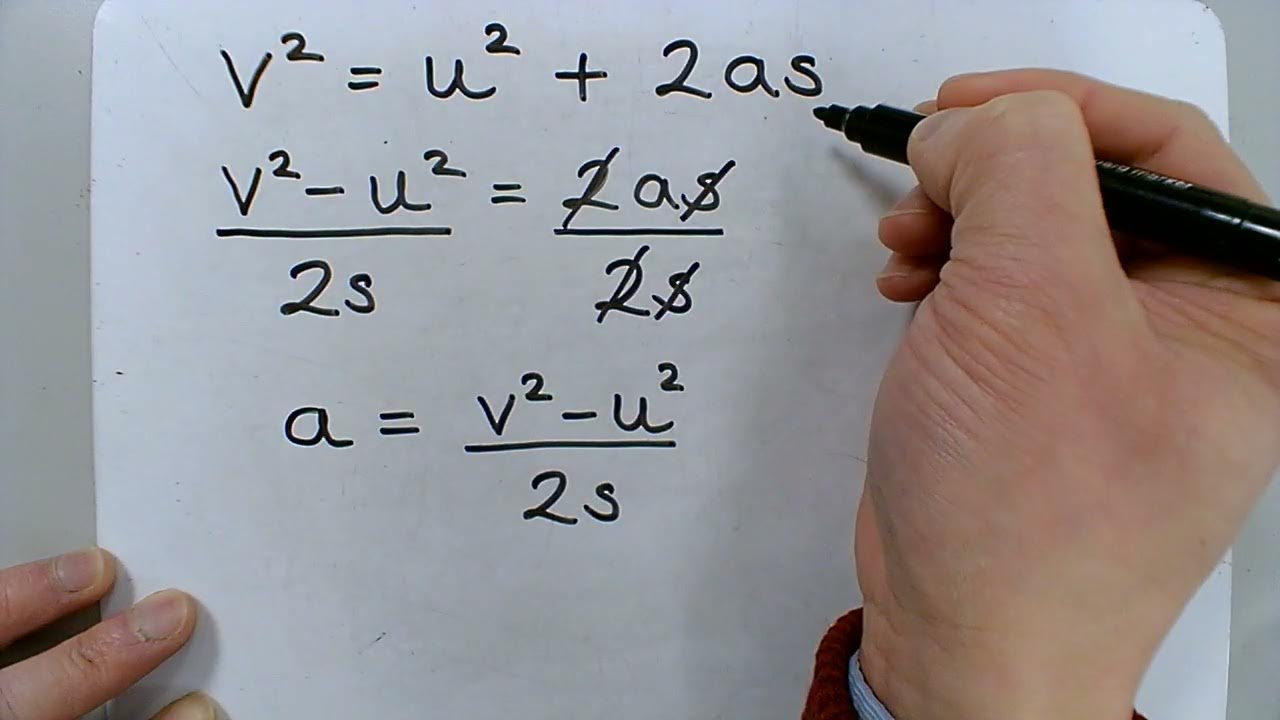 v² = u² + 2as
v² - u² = 2as
2s 2s
a = v² - u²
2s